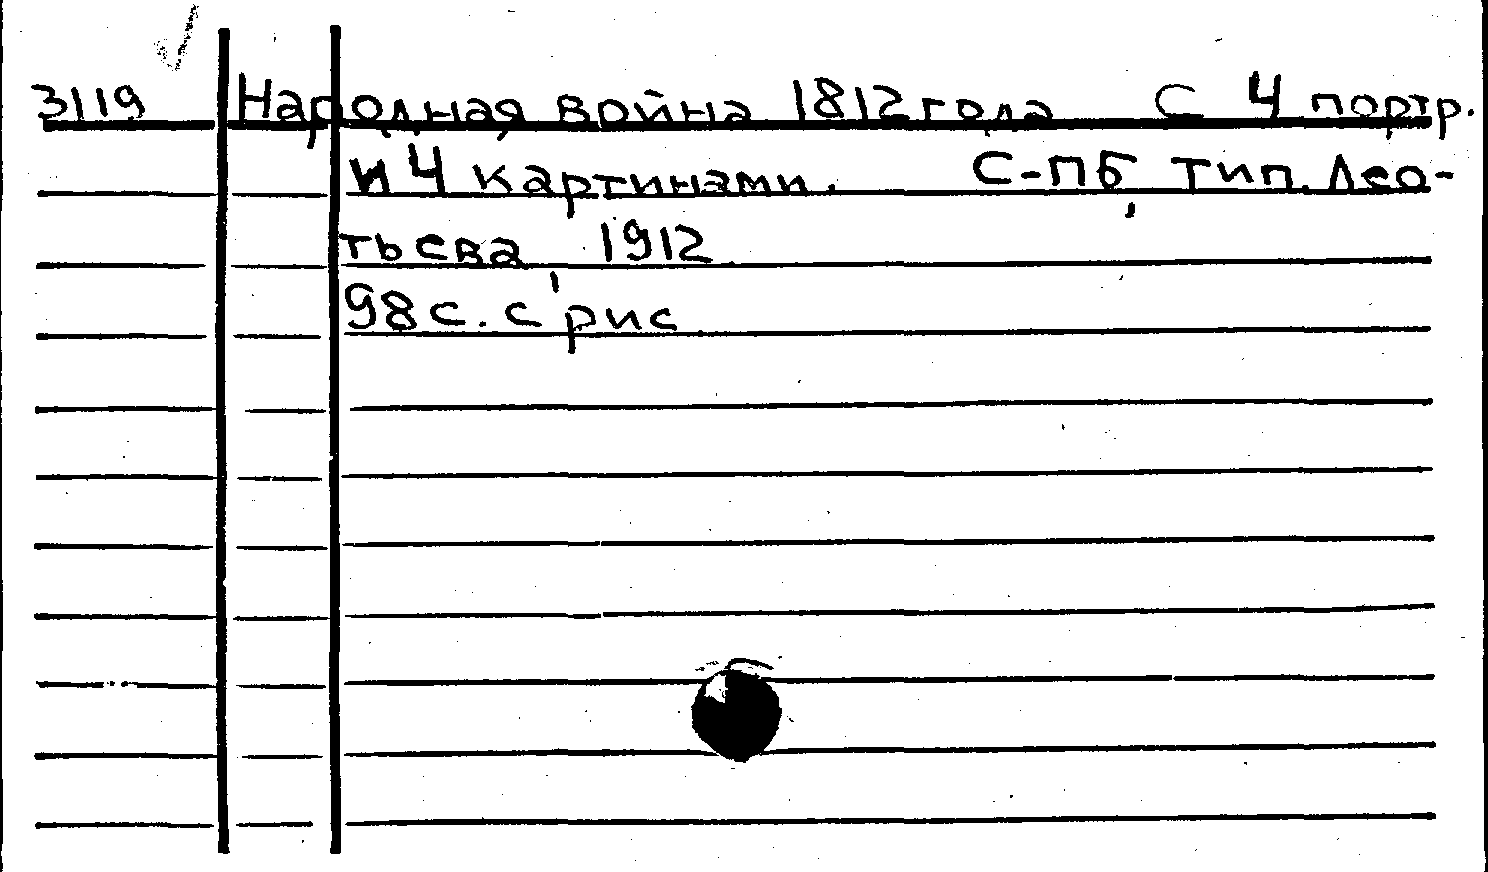 3119 Народная война 1812 года С 4 портр.
и 4 картинами. С-ПБ, тип. Лео-
тьева, 1912
98 с. с рис